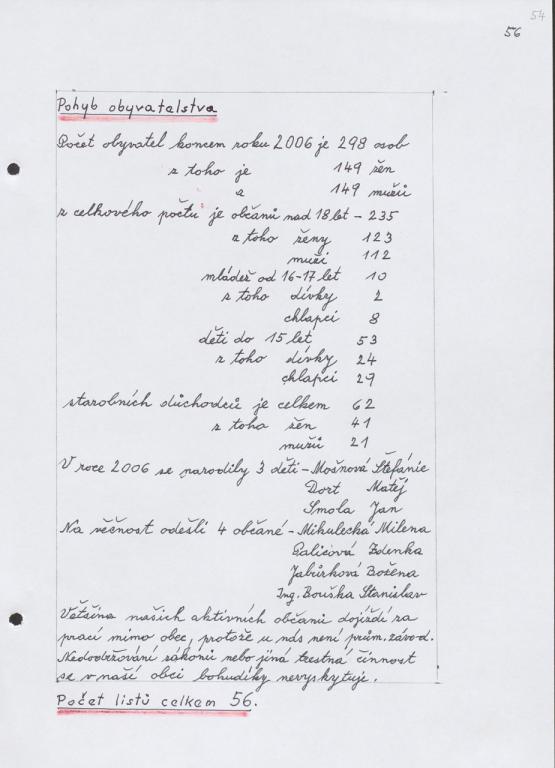 54
56
Pohyb obyvatelstva
Počet obyvatel koncem roku 2006 je 298 osob
z toho je 149 žen
a 149 mužů
z celkového počtu je občanů nad 18 let - 235
z toho ženy 123
muži 112
mládež od 16-17 let 10
z toho dívky 2
chlapci 8
děti do 15 let 53
z toho dívky 24
chlapci 29
starobních důchodců je celkem 62
z toho žen 41
mužů 21
V roce 2006 se narodily 3 děti - Mošnová Štefánie
Dort Matěj
Smola Jan
Na věčnost odešli 4 občané - Mikulecká Milena
Palicová Zdenka
Jabůrková Božena
Ing. Bouška Stanislav
Většina našich aktivních občanů dojíždí za
prací mimo obec, protože u nás není prům. závod.
Nedodržování zákonů nebo jiná trestná činnost
se v naší obci bohudíky nevyskytuje.
Počet listů celkem 56.